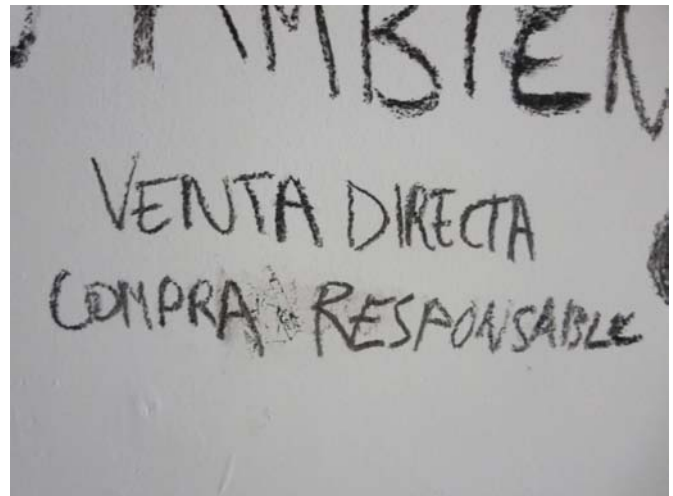 AMBIEN
VENTA DIRECTA
COMPRA RESPONSABLE